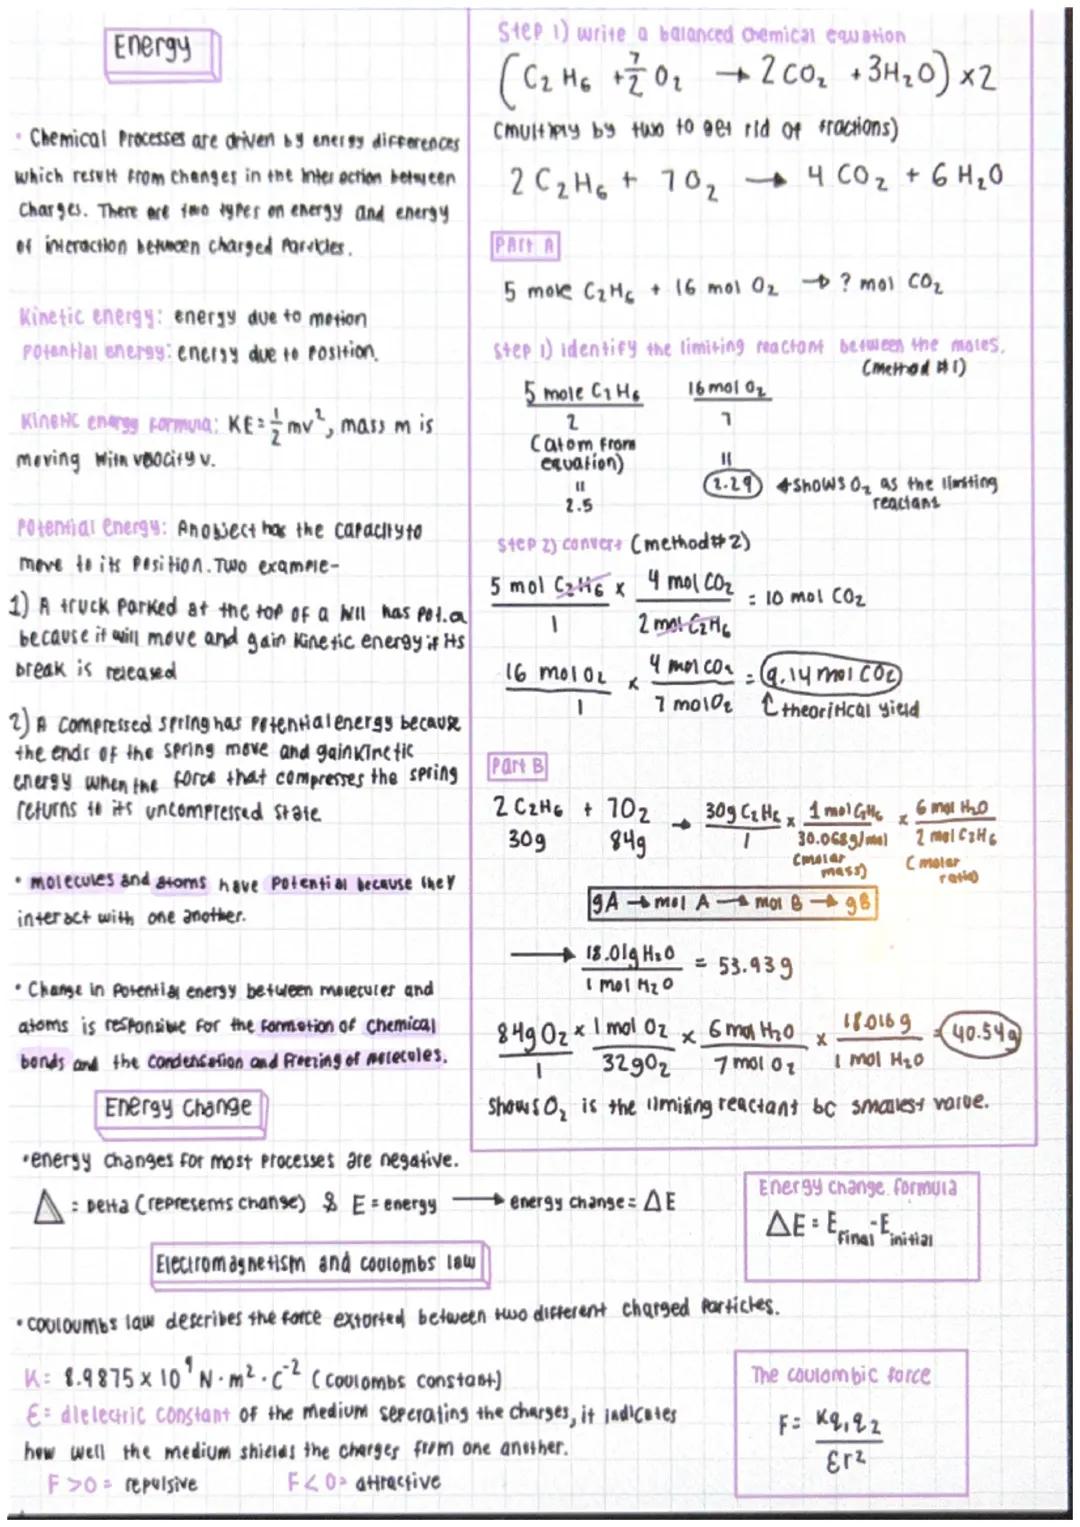 Energy
• Chemical Processes are driven by energy differences
which result from changes in the interaction between
Charges. There are two types on energy and energy
of interaction between charged Particles.
Kinetic energy: energy due to motion
Potential energy: energy due to Position.
Kinetic energy formula: KE = 1/2 mv², mass m is
moving with velocity v.
Potential Energy: An object has the capacity to
move to its Position. Two example-
1) A truck Parked at the top of a hill has pot.a
because it will move and gain Kinetic energy if its
break is released
2) A Compressed spring has Potential energy because
the ends of the spring move and gain kinetic
energy when the force that compresses the spring
returns to its uncompressed state
• molecules and atoms have Potential because they
interact with one another.
• Change in Potential energy between molecules and
atoms is responsible for the formation of Chemical
bonds and the Condensation and Freezing of molecules.
Step 1) write a balanced chemical equation
(C₂H₆ + 7/2 O₂ → 2CO₂ + 3H₂O) x2
(multiply by two to get rid of fractions)
2C₂H₆ + 7O₂ → 4CO₂ + 6H₂O
Part A
5 mole C₂H₆ + 16 mol O₂ → ? mol CO₂
Step 1) identify the limiting reactant between the moles.
(method #1)
5 mole C₂H₆ 16 mol O₂
2 7
(atom from
equation)
= =
2.5 2.29 ← shows O₂ as the limiting
reactant
Step 2) convert (method #2)
5 mol C₂H₆ / 1 x 4 mol CO₂ / 2 mol C₂H₆ = 10 mol CO₂
16 mol O₂ / 1 x 4 mol CO₂ / 7 mol O₂ = 9.14 mol CO₂
↑ theoritical yield
Part B
2C₂H₆ + 7O₂ → 30g C₂H₆ / 1 x 1 mol C₂H₆ / 30.068g/mol x 6 mol H₂O / 2 mol C₂H₆
30g 84g
(molar mass) (molar ratio)
gA → mol A → mol B → gB
→ 18.01g H₂O / 1 mol H₂O = 53.939
84g O₂ / 1 x 1 mol O₂ / 32g O₂ x 6 mol H₂O / 7 mol O₂ x 18.016g / 1 mol H₂O = 40.54g
shows O₂ is the limiting reactant bc smallest value.
Energy Change
• energy changes for most processes are negative.
△ = Delta (represents change) & E = energy → energy change = ΔE
Energy change formula
ΔE = E final - E initial
Electromagnetism and coulombs law
• Couloumbs law describes the force extorted between two different charged Particles.
K = 8.9875 x 10⁹ N·m²·C⁻² (Coulombs constant)
ε = dielectric constant of the medium seperating the charges, it indicates
how well the medium shields the charges from one another.
F > 0 = repulsive F < 0 = attractive
The coulombic force
F = Kq₁q₂ / εr²